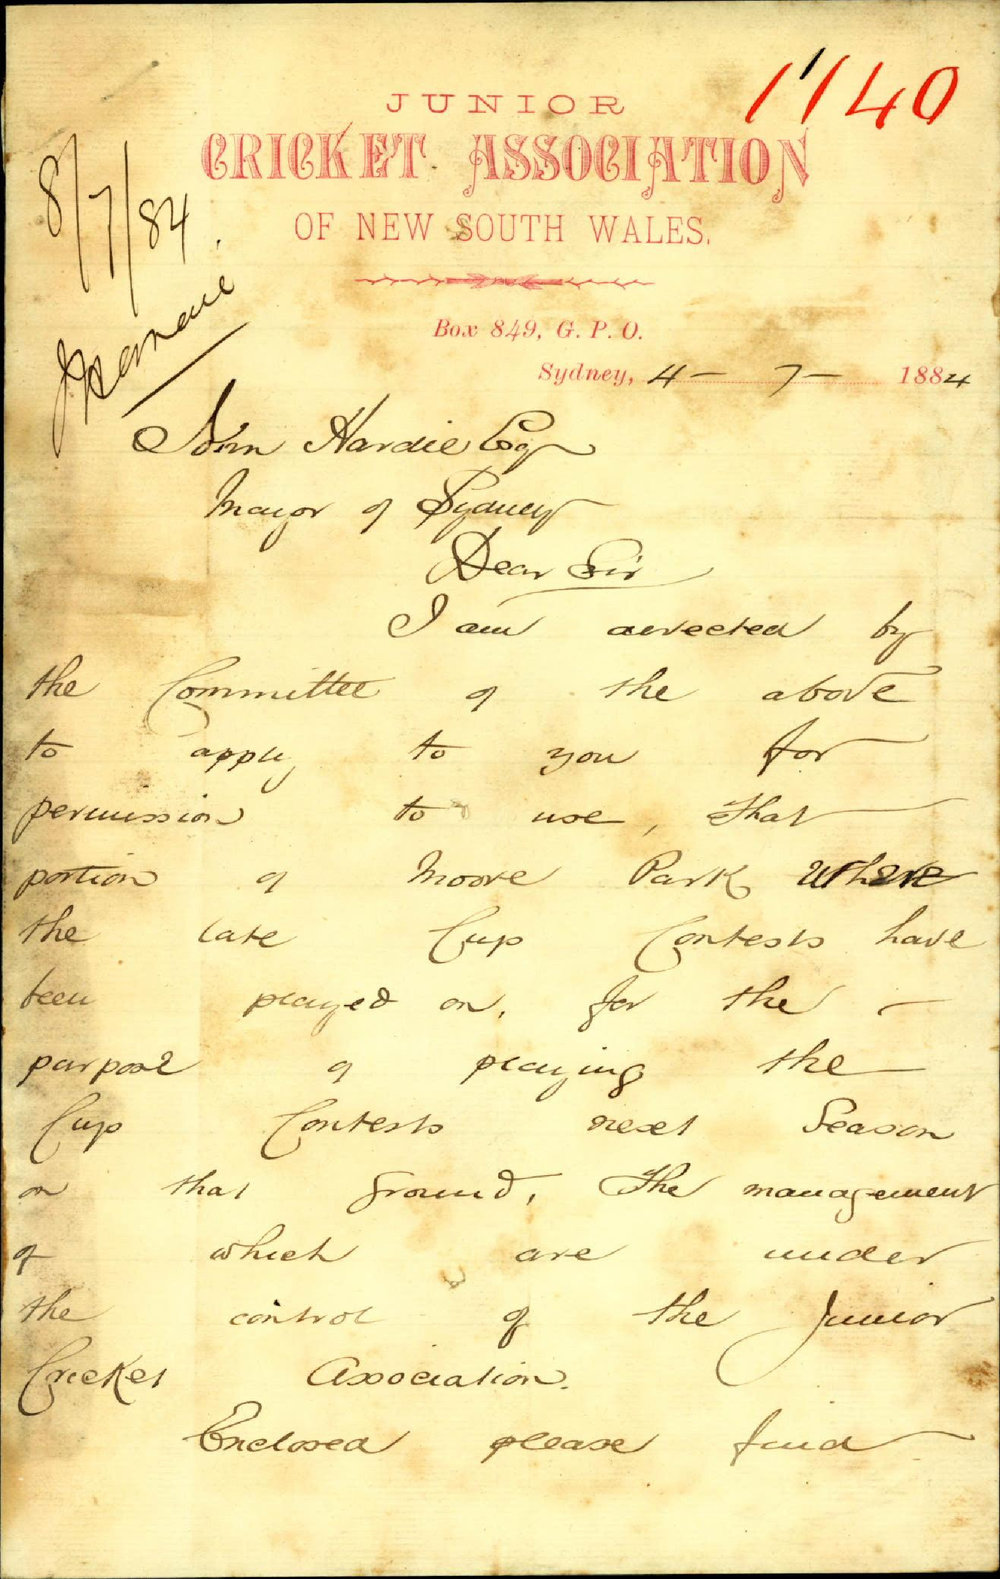 1140
JUNIOR
CRICKET ASSOCIATION
OF NEW SOUTH WALES.
8/7/84
Box 849, G. P. O.
Sydney, 4 - 7 - 1884
John Hardie Esq
Mayor of Sydney
Dear Sir
I am directed by
the Committee of the above
to apply to you for
permission to use, that
portion of Moore Park where
the late Cup Contests have
been played on, for the
purpose of playing the
Cup Contests next Season
on that ground, The management
of which are under
the control of the Junior
Cricket Association.
Enclosed please find